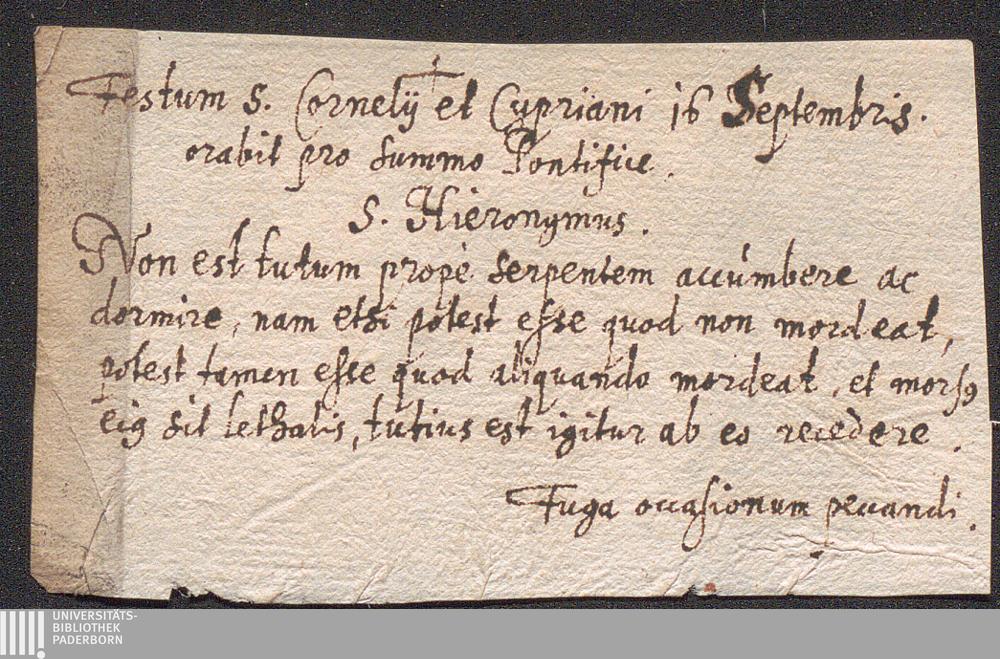 Festum S. Cornelij et Cypriani 16 Septembris.
orabit pro summo Pontifice.
S. Hieronymus.
Non est tutum propè serpentem accúmbere ac
dormire, nam etsi potest esse quod non mordeat,
potest tamen esse quod aliquando mordeat, et morsꝰ
eiꝰ sit lethalis, tutius est igitur ab eo recedere.
Fuga occasionum peccandi.
UNIVERSITÄTS-
BIBLIOTHEK
PADERBORN